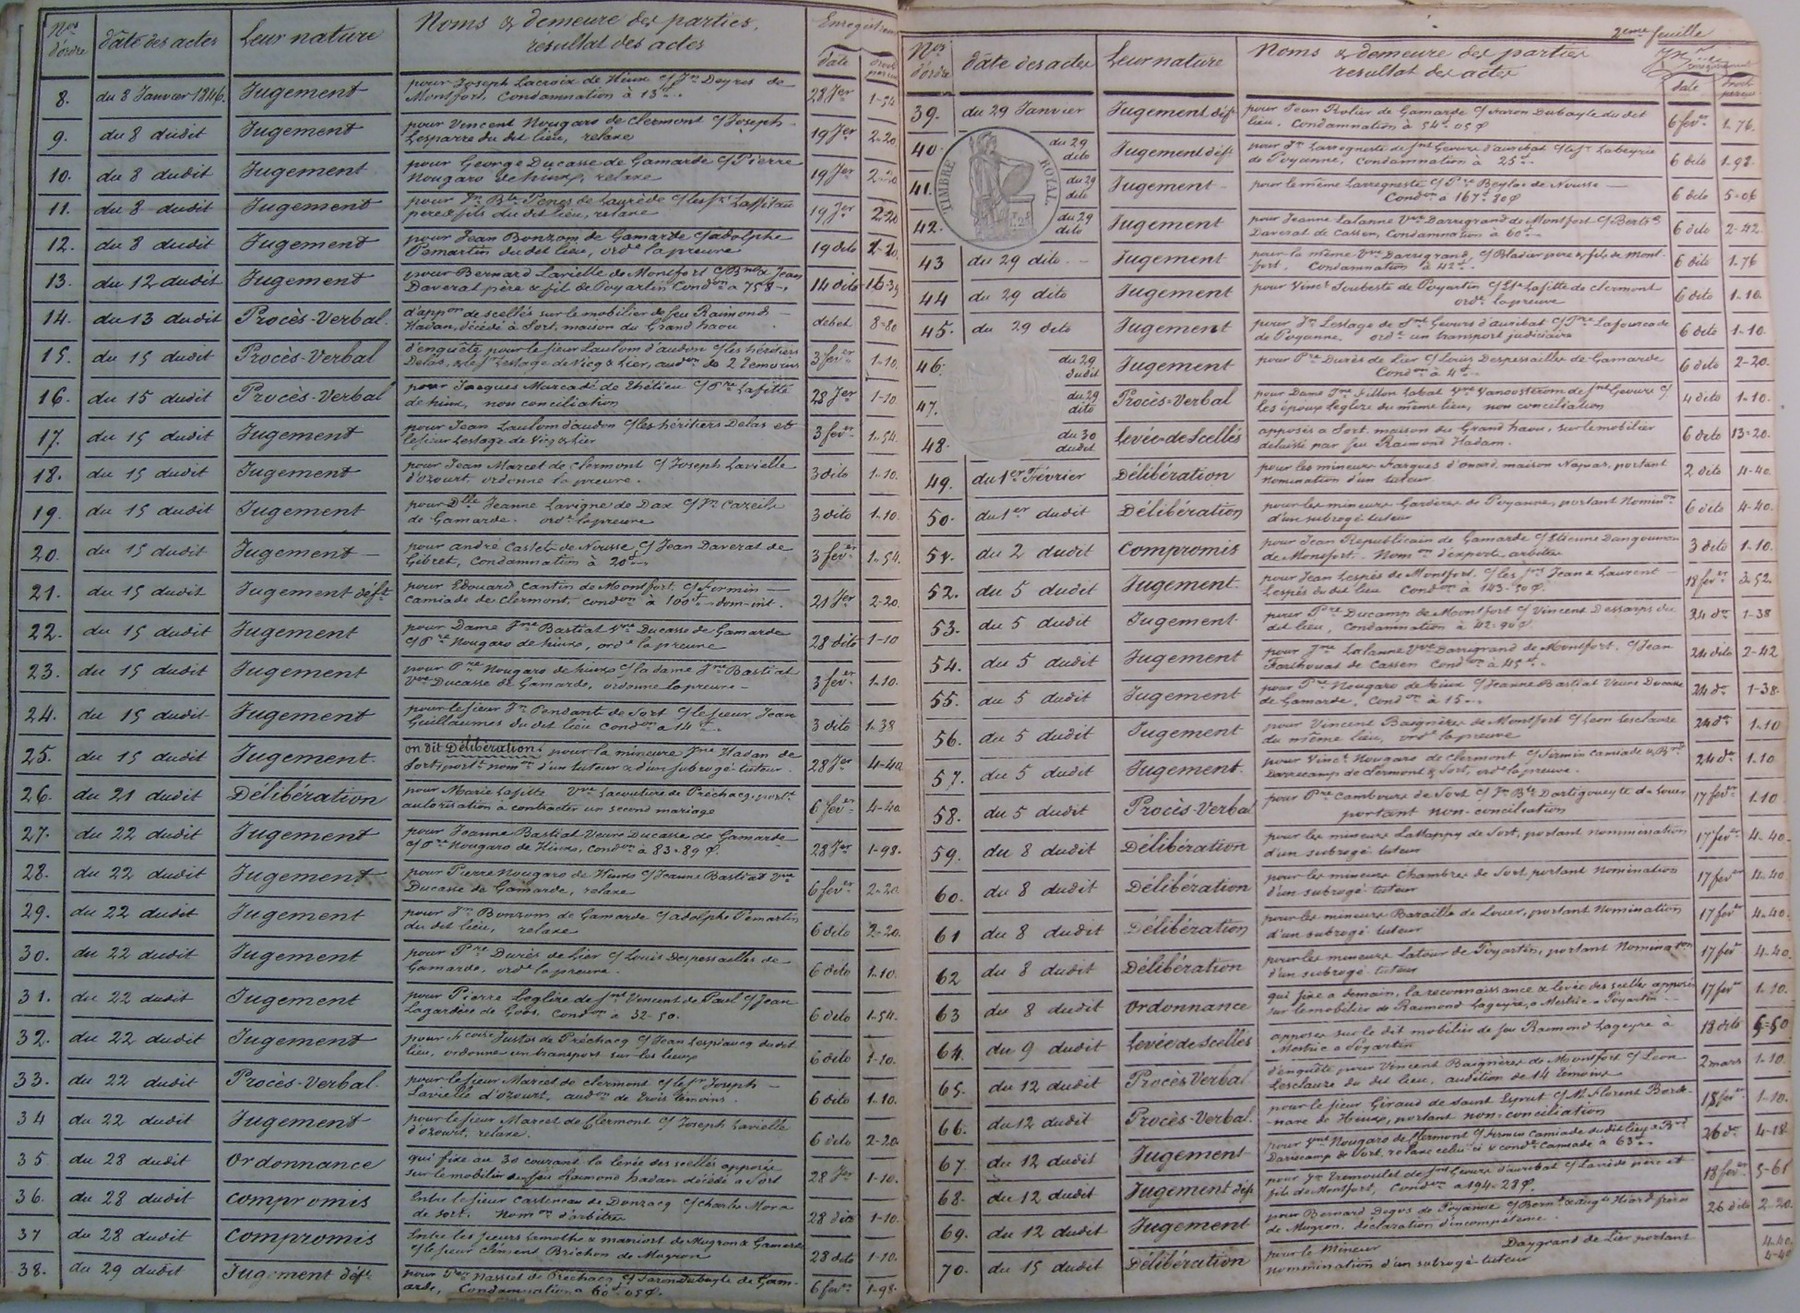 Nos d'ordre | date des actes | Leur nature | Noms & demeure des parties, résultat des actes | Enregistrem | date | droit perçus
8. | du 8 Janvier 1846. | Jugement | pour Joseph Lacroix de Hinx c/ Jn Deyres de
Montfort, Condamnation à 13f | 28 Jer | 1-54
9. | du 8 dudit | Jugement | pour Vincent Nougaro de Clermont c/ Joseph
Lesparre du dit lieu, relaxe | 19 Jer | 2-20
10. | du 8 dudit | Jugement | pour George Ducasse de Gamarde c/ Pierre
Nougaro de hinx, relaxe | 19 Jer | 2-20
11. | du 8 dudit | Jugement | pour Jn Bte de Laurède c/ les Lassitau
père & fils du dit lieu, relaxe | 19 Jer | 2-20
12. | du 8 dudit | Jugement | pour Jean Bonzom de Gamarde c/ adolphe
Pemartin du dit lieu, orde la preuve | 19 dito
13. | du 12 dudit | Jugement | pour Bernard Lavielle de Montfort c/ Bnd & Jean
Daverat père & fils de Poyartin Condon a 758 | 14 dito
14. | du 13 dudit | Procès-Verbal. | d'appon de scellés sur le mobilier de feu Raimond
Hadan, décédé à Sort, maison du Grand haou | debet | 8-80
15. | du 15 dudit | Procès-Verbal | d'enquête pour le sieur Laulom d'audon c/ les héritiers
Delas, & le sr Lestage de Vicq & Lier, audon de 2 témoins | 3 fever | 1-10.
16. | du 15 dudit | Procès-Verbal | pour Jacques Marcadé de thétieu c/ Pre Lafitte
de hinx, non conciliation | 28 Jer | 1-10
17. | du 15 dudit | Jugement | pour Jean Laulom d'audon c/ les héritiers Delas et
le sieur Lestage de Vicq & Lier | 3 fever | 1-54.
18. | du 15 dudit | Jugement | pour Jean Marcet de Clermont c/ Joseph Lavielle
d'ozourt, ordonne la preuve. | 3 dito | 1-10.
19. | du 15 dudit | Jugement | pour Dlle Jeanne Lavigne de Dax c/ Jn Cazeils
de Gamarde. orde la preuve | 3 dito | 1-10.
20. | du 15 dudit | Jugement | pour andré Castets de Nousse c/ Jean Daverat de
Gibret, Condamnation à 20f | 3 fever | 1-54.
21. | du 15 dudit | Jugement déft | pour Edouard Cantin de Montfort, c/ Firmin
Camiade de Clermont, condon à 100f dom-int. | 21 Jer | 2-20.
22. | du 15 dudit | Jugement | pour Dame Jne Bastiat Vve Ducasse de Gamarde
c/ Pre Nougaro de hinx, orde la preuve | 28 dito | 1-10
23. | du 15 dudit | Jugement | pour Pre Nougaro de hinx c/ la dame Jne Bastiat
Vve Ducasse de Gamarde, ordonne la preuve | 3 fever | 1-10.
24. | du 15 dudit | Jugement | pour le sieur Jn Pendant de Sort c/ le sieur Jean
Guillaumes du dit lieu Condon a 14f | 3 dito | 1-38
25. | du 15 dudit | Jugement. | on dit Délibération. pour la mineure Jne Hadan de
Sort, portt nomon d'un tuteur & d'un subrogé tuteur. | 28 Jer | 4-40
26. | du 21 dudit | Délibération | pour Marie Lafitte Vve Lacouture de Préchacq, portt
autorisation à contracter un second mariage | 6 fever | 4-40
27. | du 22 dudit | Jugement | pour Jeanne Bastiat Veuve Ducasse de Gamarde
c/ Pre Nougaro de Hinx, condon à 83-89 c. | 28 Jer | 1-98.
28. | du 22 dudit | Jugement | pour Pierre Nougaro de Hinx c/ Jeanne Bastiat Vve
Ducasse de Gamarde, relaxe | 6 fever | 2-20
29. | du 22 dudit | Jugement | pour Jn Bonzom de Gamarde c/ adolphe Pemartin
du dit lieu, relaxe | 6 dito | 2-20
30. | du 22 dudit | Jugement | pour Pre Duriès de Lier c/ Louis Despessailles de
Gamarde, orde la preuve. | 6 dito | 1-10.
31. | du 22 dudit | Jugement | pour Pierre Leglize de Snt Vincent de Paul c/ Jean
Lagardère de Goos. Condon a 32-50. | 6 dito | 1-54.
32. | du 22 dudit | Jugement | pour Justes de Préchacq c/ Jean Lespiaucq du dit
lieu, ordonne un transport sur les lieux | 6 dito | 1-10.
33. | du 22 dudit | Procès-Verbal. | pour le sieur Marcet de Clermont c/ le sr Joseph
Lavielle d'ozourt, audon de trois témoins. | 6 dito | 1-10.
34 | du 22 dudit | Jugement | pour le sieur Marcet de Clermont c/ Joseph Lavielle
d'ozourt, relaxe. | 6 dito | 2-20
35 | du 28 dudit | Ordonnance | qui fixe au 30 courant la levée des scellés apposés
sur le mobilier de feu Raimond hadan décédé a Sort | 28 Jer | 1-10.
36. | du 28 dudit | Compromis | Entre le sieur Castencau de Donzacq c/ Charles Mora
de Sort. Nomon d'arbitre | 28 dito | 1-10.
37 | du 28 dudit | Compromis | Entre les sieurs Lamothe & maniort de Mugron & Gamarde
c/ le sieur Clément Brichon de Mugron | 28 dito | 1-10.
38. | du 29 dudit | Jugement déft | pour Nasset de Préchacq c/ Jaron Dubayle de Gam-
arde, Condamnation a 60f 05c. | 6 fever | 1-98.
2eme feuille
Nos d'ordre | date des actes | Leur nature | Noms & demeure des parties résultat des actes | date | Droit perçus
39. | du 29 Janvier | Jugement déft | pour Jean Rolier de Gamarde c/ Jaron Dubayle du dit
lieu. Condamnation à 54f 05c | 6 fever | 1-76.
TIMBRE ROYAL
40. | du 29 dito | Jugement déft | pour Jn Larregneste de Snt Geours d'auribat c/ le sr Labeyrie
de Poyanne, Condamnation à 25f | 6 dito | 1-98.
41. | du 29 dito | Jugement | pour le même Larregneste c/ Pre Beylas de Nousse
Condon a 167f 80c | 6 dito | 5-06
42. | du 29 dito | Jugement | pour Jeanne Lalanne Vve Darrigrand de Montfort c/
Daverat de Cassen, Condamnation à 60f | 6 dito | 2-42.
43 | du 29 dito. | Jugement | pour la même Vve Darrigrand, c/ Pladier père & fils de Mont-
fort. Condamnation à 42f | 6 dito | 1-76
44 | du 29 dito | Jugement | pour Vinct Soubeste de Poyartin c/ Lafitte de Clermont
orde la preuve | 6 dito | 1-10.
45. | du 29 dito | Jugement | pour Jn Lestage de Snt Geours d'auribat c/ Pre Lafourcade
de Poyanne, orde un transport judiciaire | 6 dito | 1-10.
46. | du 29 dudit | Jugement | pour Pre Duriès de Lier c/ Louis Despessailles de Gamarde
Condon à 4f | 6 dito | 2-20.
47. | du 29 dito | Procès-Verbal | pour Dame Jne Fillon Labat Vve Vanoosterom de Snt Geours c/
les époux Leglize du même lieu, non conciliation | 4 dito | 1-10.
48. | du 30 dudit | Levée de Scellés | apposés a Sort, maison du Grand haou, sur le mobilier
délaissé par feu Raimond Hadan. | 6 dito | 13-20.
49. | du 1er Février | Délibération | pour les mineurs Fargues d'onard, maison Napias, portant
nomination d'un tuteur | 2 dito | 4-40.
50. | du 1er dudit | Délibération | pour les mineurs Gardères de Poyanne, portant Nominon
d'un subrogé tuteur | 6 dito | 4-40.
51. | du 2 dudit | Compromis | pour Jean Republicain de Gamarde c/ Etienne Dangoumau
de Montfort. Nomon d'experts arbitres | 3 dito | 1-10.
52. | du 5 dudit | Jugement. | pour Jean Lespès de Montfort, c/ les srs Jean & Laurent
Lespès du dit lieu Condon a 143-50c. | 18 fever | 3-52.
53. | du 5 dudit | Jugement | pour Pre Ducamp de Montfort c/ Vincent Dessarps du
dit lieu, Condamnation à 42-90c. | 24 do | 1-38
54. | du 5 dudit | Jugement | pour Jne Lalanne Vve Darrigrand de Montfort. c/ Jean
Farthouat de Cassen Condon à 45f | 24 dito | 2-42
55. | du 5 dudit | Jugement | pour Pre Nougaro de hinx c/ Jeanne Bastiat Veuve Ducasse
de Gamarde. Condon à 15 | 24 do | 1-38.
56. | du 5 dudit | Jugement | pour Vincent Baignères de Montfort c/ Léon Lesclauze
du même lieu, orde la preuve | 24 do | 1-10
57. | du 5 dudit | Jugement | pour Vinct Nougaro de Clermont c/ Firmin Camiade &
Darrecamp de Clermont & Sort, orde la preuve. | 24 do | 1.10
58. | du 5 dudit | Procès-Verbal | pour Pre Cambours de Sort c/ Jn Bte Dartigoueyte de Louer
portant non-conciliation | 17 fever | 1.10
59. | du 8 dudit | Délibération | pour les mineurs Lathappy de Sort, portant nommination
d'un subrogé tuteur | 17 fever | 4-40.
60. | du 8 dudit | Délibération | pour les mineurs Chambres de Sort portant nomination
d'un subrogé tuteur | 17 fever | 4-40
61 | du 8 dudit | Délibération | pour les mineurs Baraille de Louer, portant Nomination
d'un subrogé tuteur | 17 fever | 4-40.
62 | du 8 dudit | Délibération | pour les mineurs Latour de Poyartin, portant Nomination
d'un subrogé tuteur | 17 fevr | 4-40.
63 | du 8 dudit | Ordonnance | qui fixe a demain, la reconnaissance & levée des scellés apposés
sur le mobilier de Raimond Lageyre, a Mestric a Poyartin | 17 fevr | 1.10.
64. | du 9 dudit | Levée de Scellés | apposés sur le dit mobilier de feu Raimond Lageyre à
Mestric a Poyartin | 18 dito | 5-50
65. | du 12 dudit | Procès Verbal | d'enquête pour Vincent Baignères de Montfort c/ Léon
Lesclauze du dit lieu, audition de 14 témoins | 2 mars | 1.10.
66. | du 12 dudit | Procès-Verbal. | pour le sieur Giraud de Saint Esprit c/ Mr Florent Borde-
nave de Hinx, portant non-conciliation | 18 fever | 1-10.
67. | du 12 dudit | Jugement | pour Vnt Nougaro de Clermont c/ firmin Camiade du dit lieu &
Darrecamp de Sort, relaxe celui-ci & conde Camiade à 63f | 26 do | 4-18
68. | du 12 dudit | Jugement déft | pour Jn Tremoulet de Snt Geours d'auribat c/ Lavède père et
fils de Montfort, Condon a 194-28c. | 18 fever | 5-61
69. | du 12 dudit | Jugement | pour Bernard Degos de Poyanne c/ Bernd & Hiard frères
de Mugron, déclaration d'incompétence. | 26 dito | 2-20.
70. | du 15 dudit | Délibération | pour le Mineur Daygrand de Lier portant
nommination d'un subrogé-tuteur | 4-40.
4-40